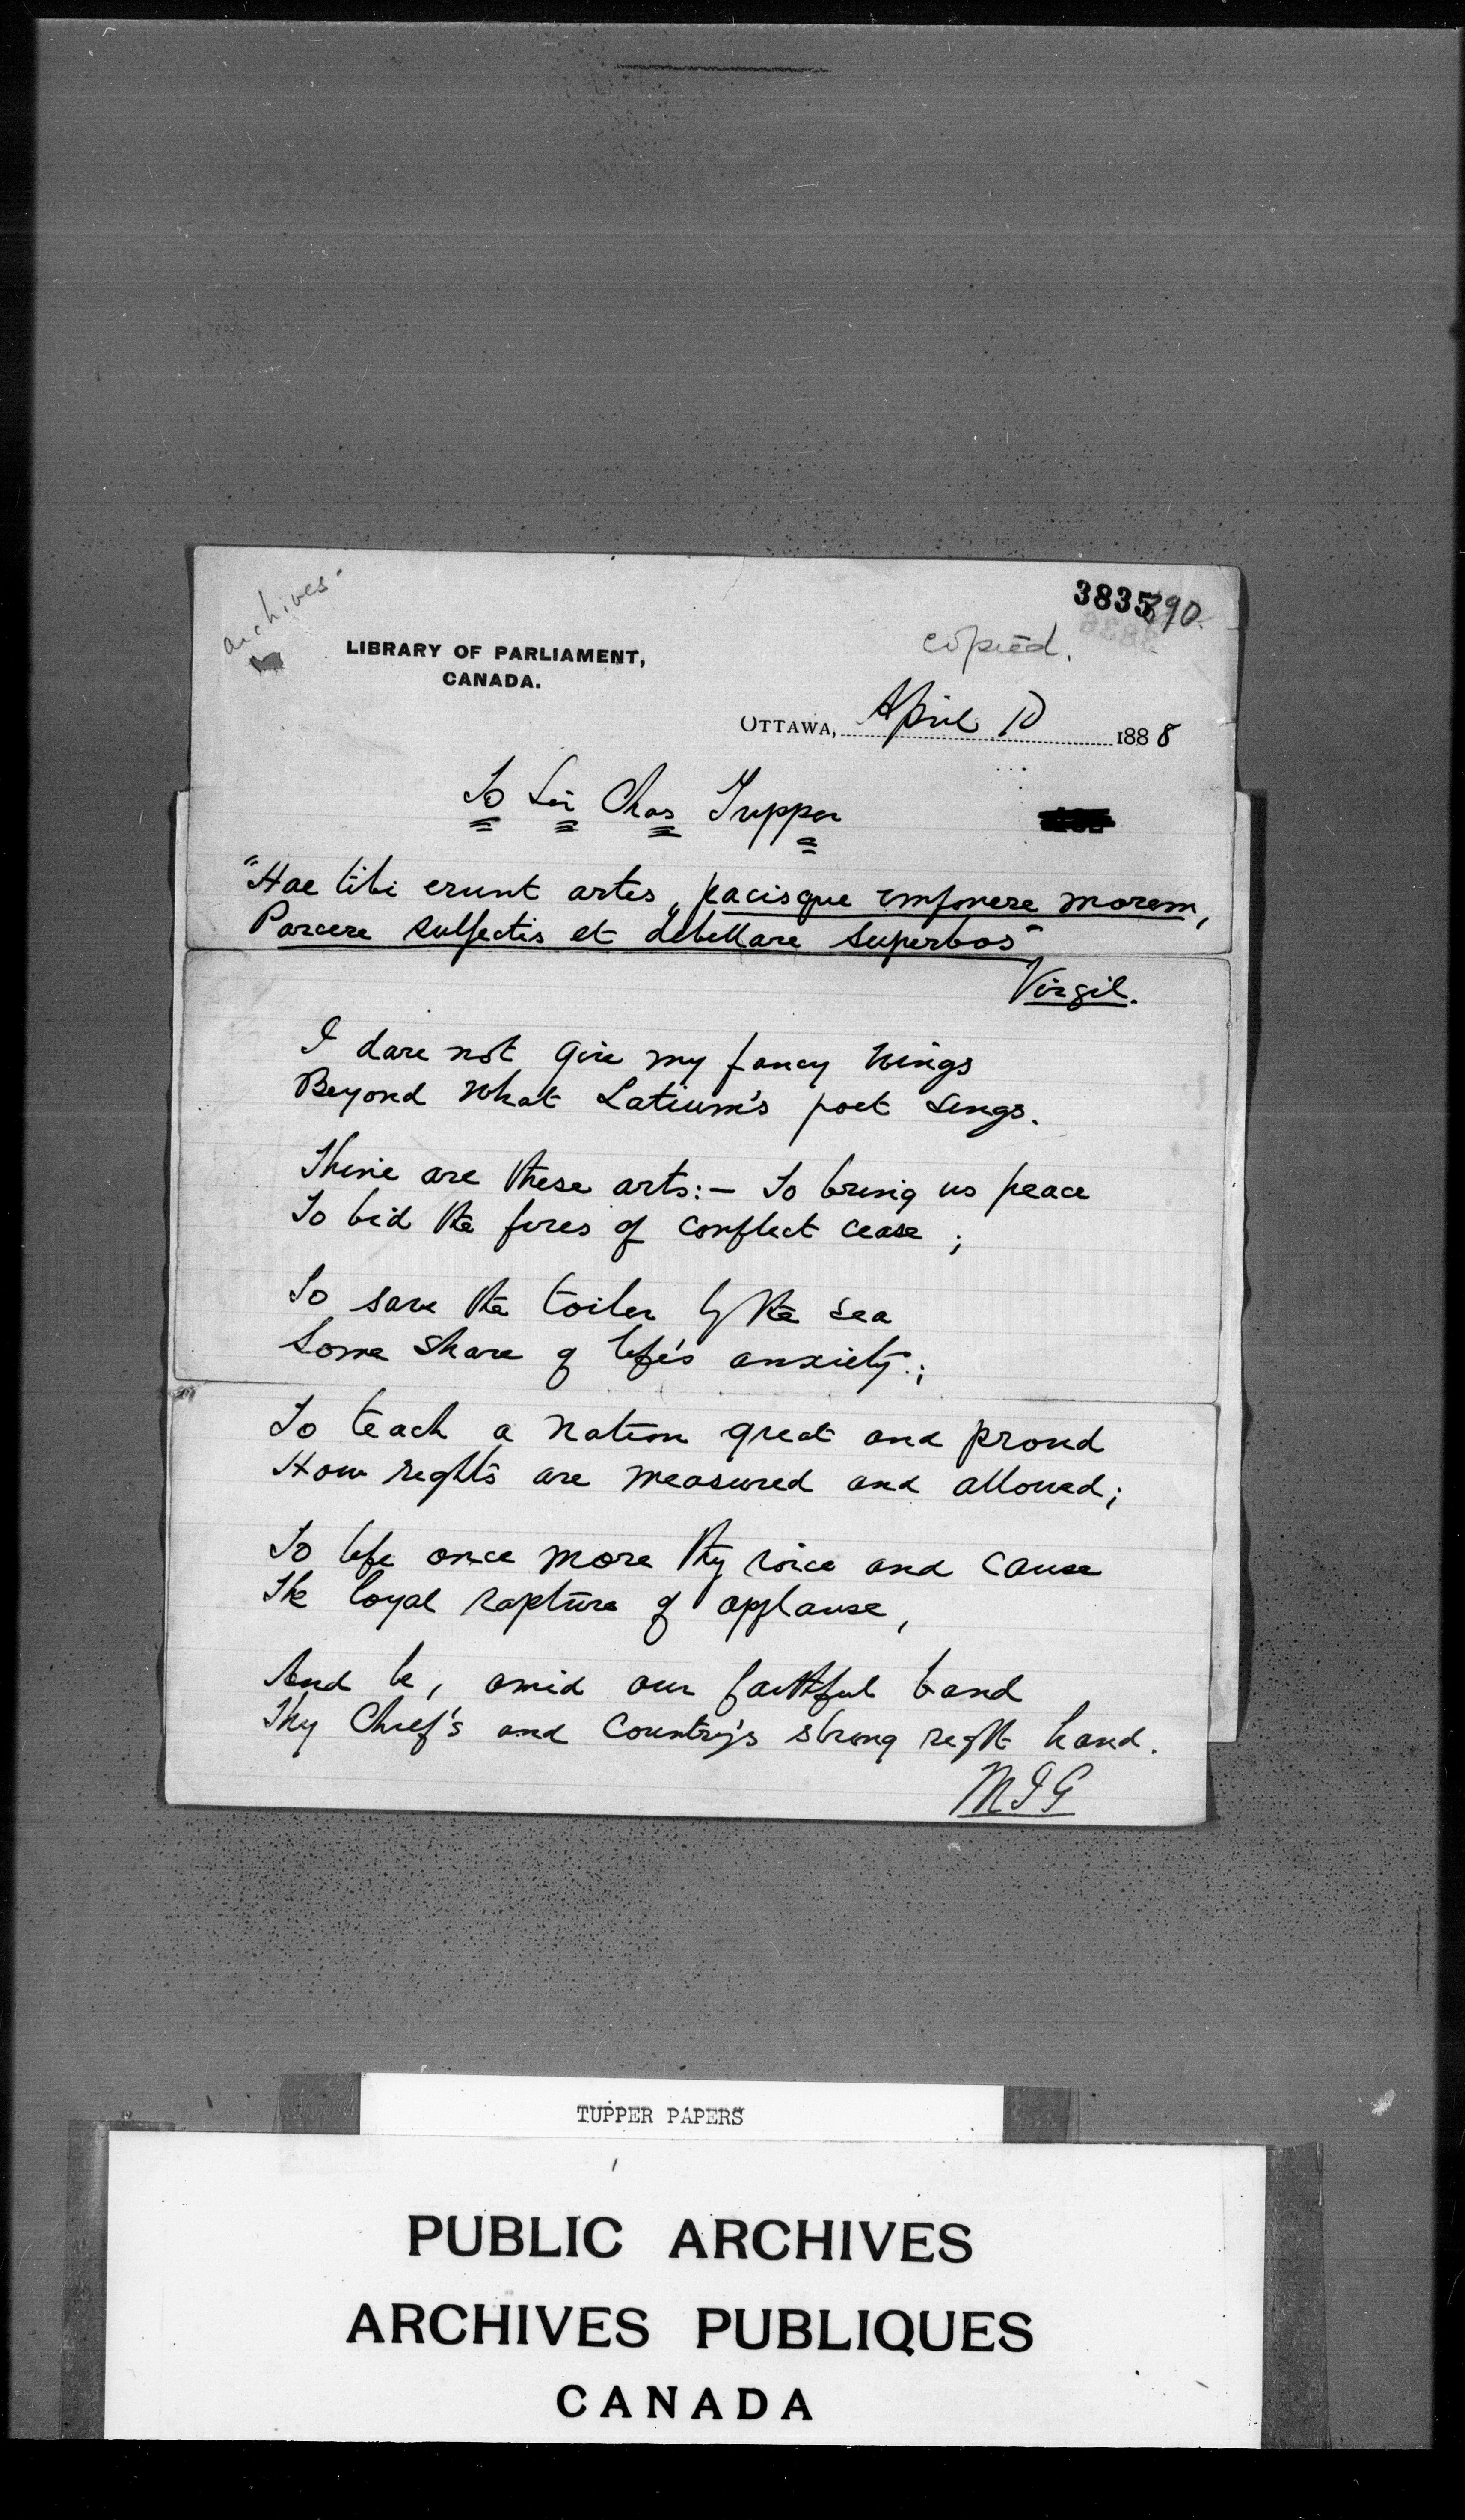 archives.
3835 390.
copied.
LIBRARY OF PARLIAMENT,
CANADA.
OTTAWA, April 10 1888
To Sir Chas Tupper
"Hae tibi erunt artes, pacisque imponere morem,
Parcere subjectis et debellare superbos"
Virgil.
I dare not give my fancy wings
Beyond what Latium's poet sings.
Thine are these arts:— To bring us peace
To bid the fires of conflict cease;
To save the toiler by the sea
Some share of life's anxiety;
To teach a nation great and proud
How rights are measured and allowed;
To lift once more thy voice and cause
The loyal rapture of applause,
And be, amid our faithful band
Thy Chief's and Country's strong right hand.
MJG
TUPPER PAPERS
PUBLIC ARCHIVES
ARCHIVES PUBLIQUES
CANADA